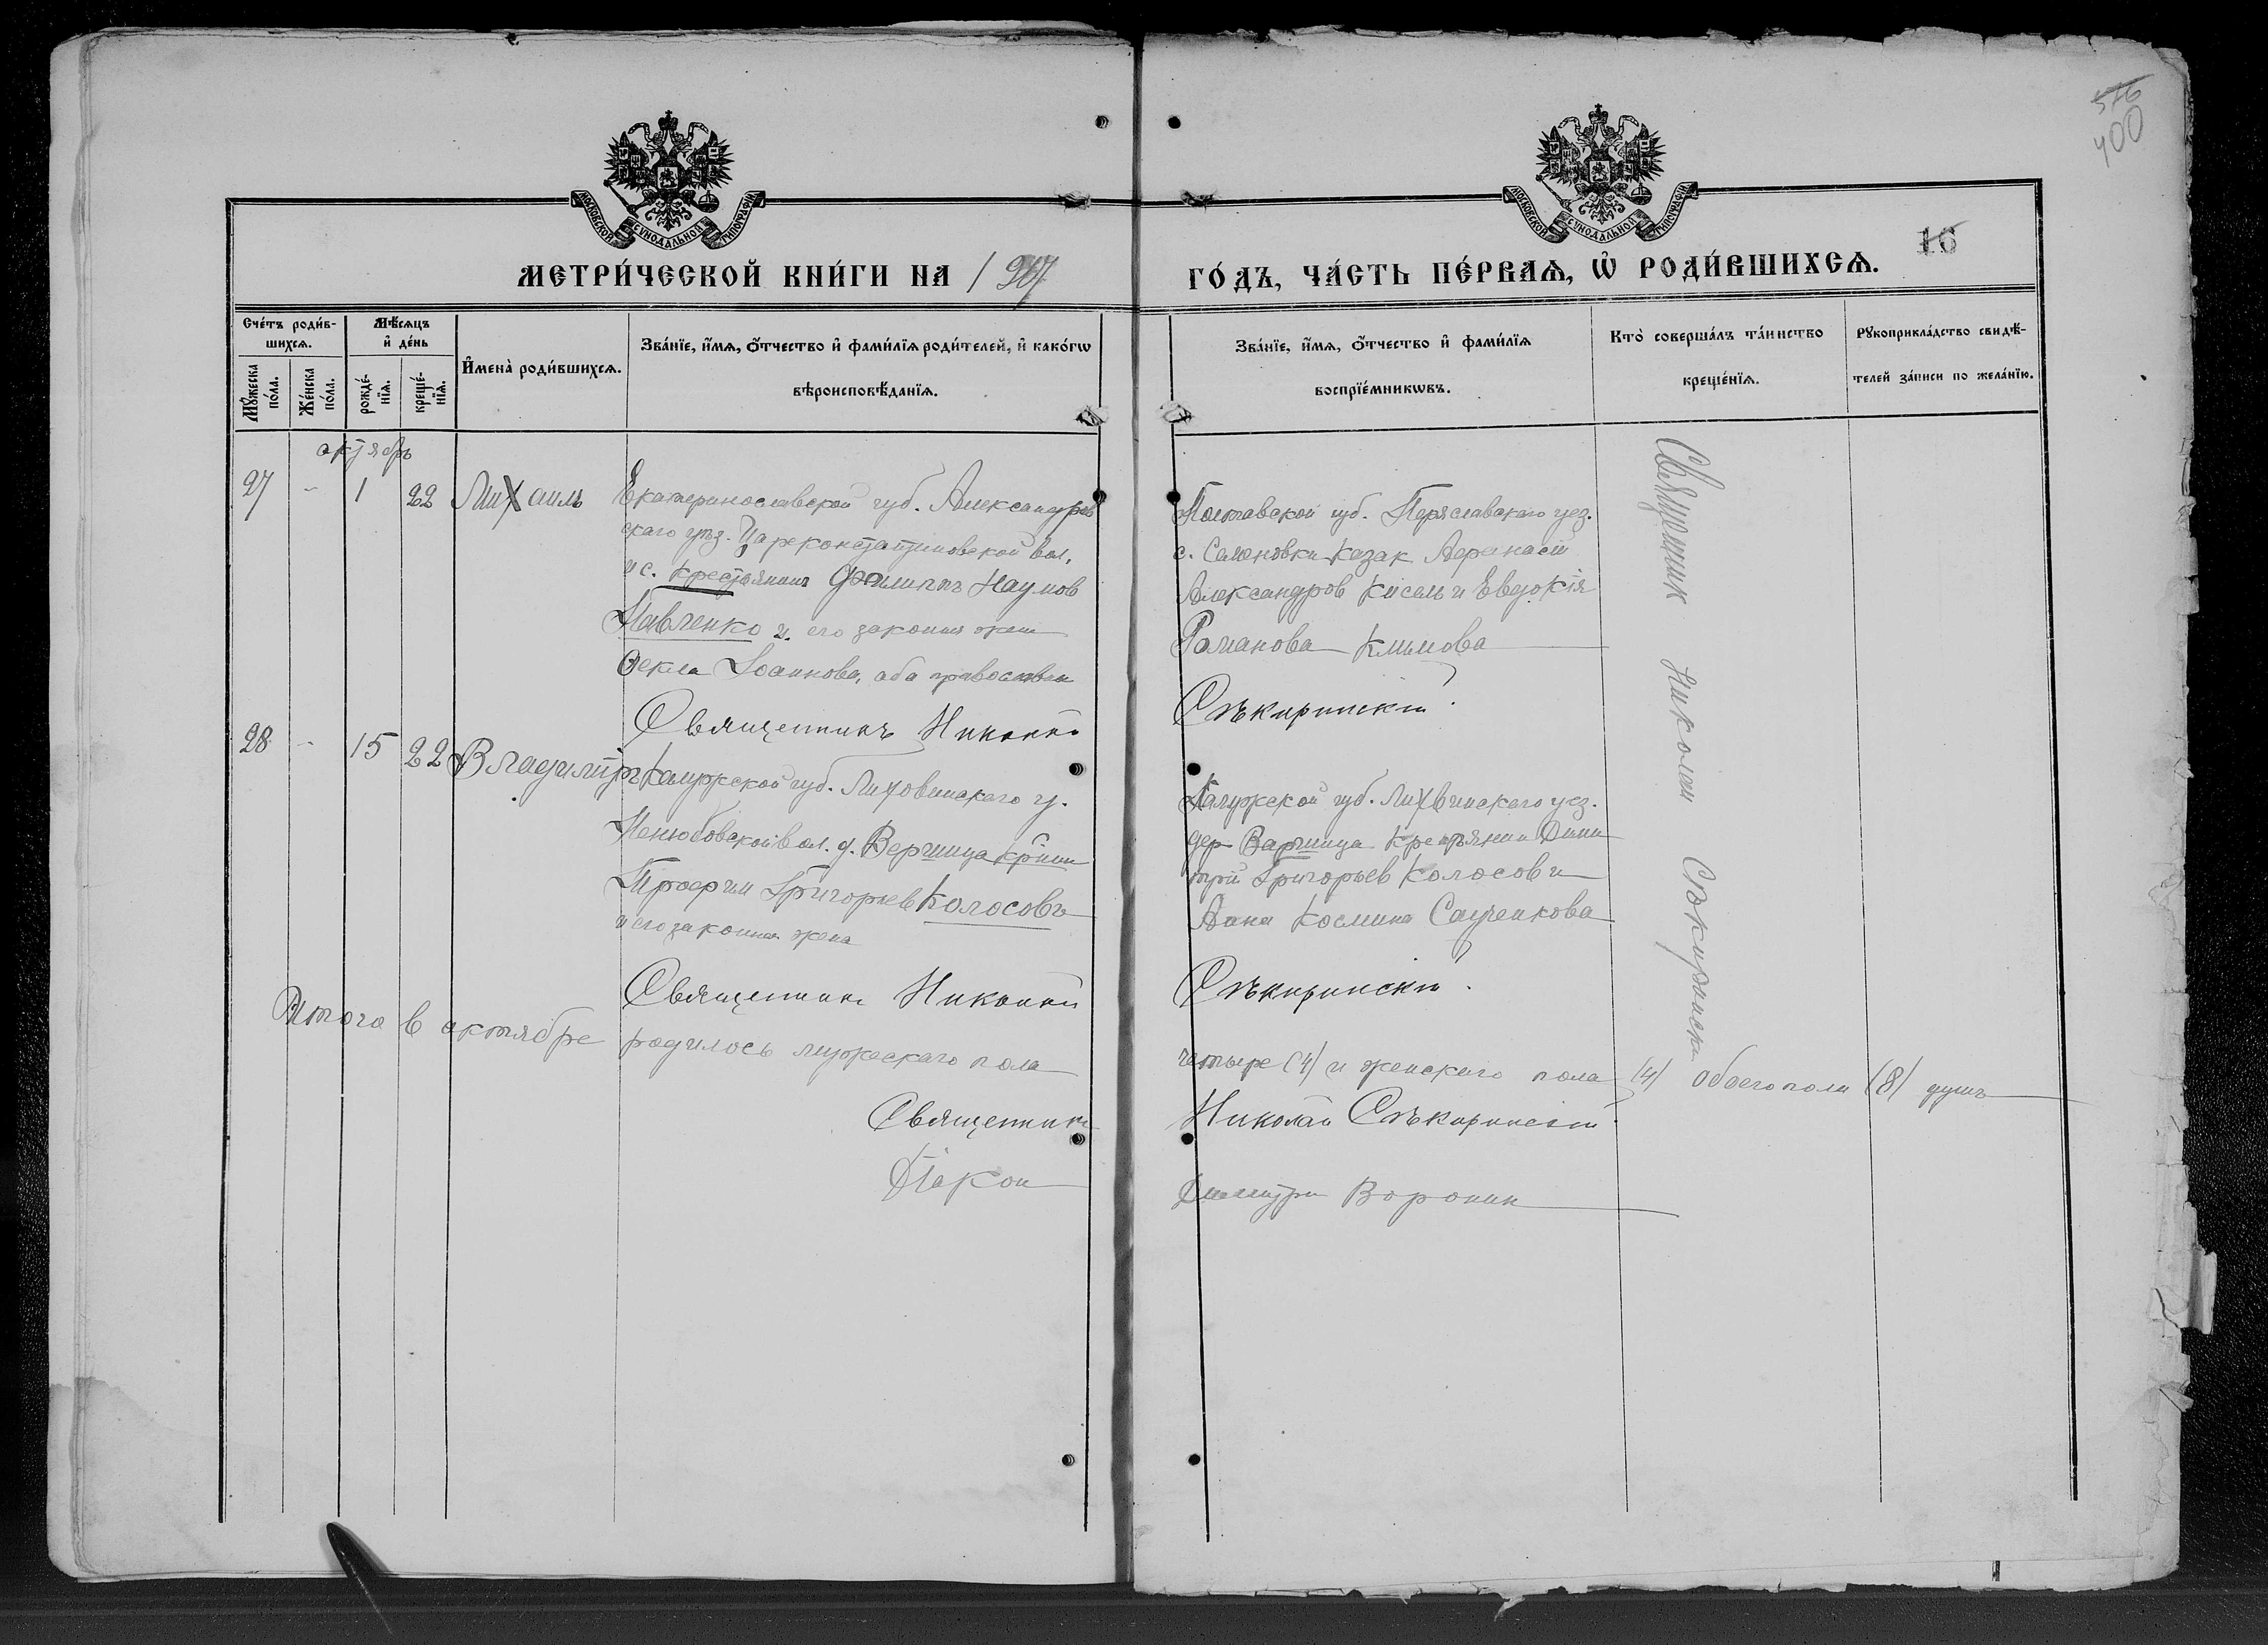 576
400
16
МОСКОВСКОЙ СѴНОДАЛЬНОЙ ТИПОГРАФІИ
МОСКОВСКОЙ СѴНОДАЛЬНОЙ ТИПОГРАФІИ
МЕТРИ́ЧЕСКОЙ КНИ́ГИ НА 1907
ГО́ДЪ, ЧА́СТЬ ПЕ́РВАѦ, Ѡ҆ РОДИ́ВШИХСѦ.
Сче́тъ роди́в-
шихсѧ.
Мѣ́сѧцъ
и҆ де́нь
Мꙋ́жеска
по́ла.
Же́нска
по́ла.
рожде́-
нїѧ.
креще́-
нїѧ.
И҆мена̀ роди́вшихсѧ.
Зва́нїе, и҆́мѧ, ѻ҆́тчество и҆ фами́лїѧ роди́телей, и҆ како́гѡ
вѣроисповѣ́данїѧ.
Зва́нїе, и҆́мѧ, ѻ҆́тчество и҆ фами́лїѧ
воспрїе́мникѡвъ.
Кто̀ соверша́лъ та́инство
креще́нїѧ.
Рꙋкоприкла́дство свидѣ́-
телей за́писи по жела́нїю.
октябрь
27 - 1 22 Михаилъ
Екатеринославской губ. Александров
скаго уѣз. Цареконстантиновской вол.
и с. крестьянинъ Филиппъ Наумов
Павленко и его законная жена
Ѳекла Іоаннова, оба православн
Священникъ Николай
Полтавской губ. Переяславскаго уез.
с. Семеновки казак Афанасій
Александров Кисель и Евдокія
Романова Климова
Сѣкиринскій.
28 - 15 22 Владиміръ
Калужской губ. Лиховинскаго у.
вол. д. Вершица кр̃нин
Трофим Григорьев Колосовъ
и его законная жена
Священник Николай
Калужской губ. Лихвинскаго уез.
дер Варшица Крестьянин Дими
трій Григорьев Колосов и
Анна Космина
Сѣкиринскій.
Священник Николай Сѣкиринскій
Итого в октябре родилось мужескаго пола четыре (4) и женскаго пола (4) обоего пола (8) душъ
Священник Николай Сѣкиринскій
Діакон Димитри Воронин